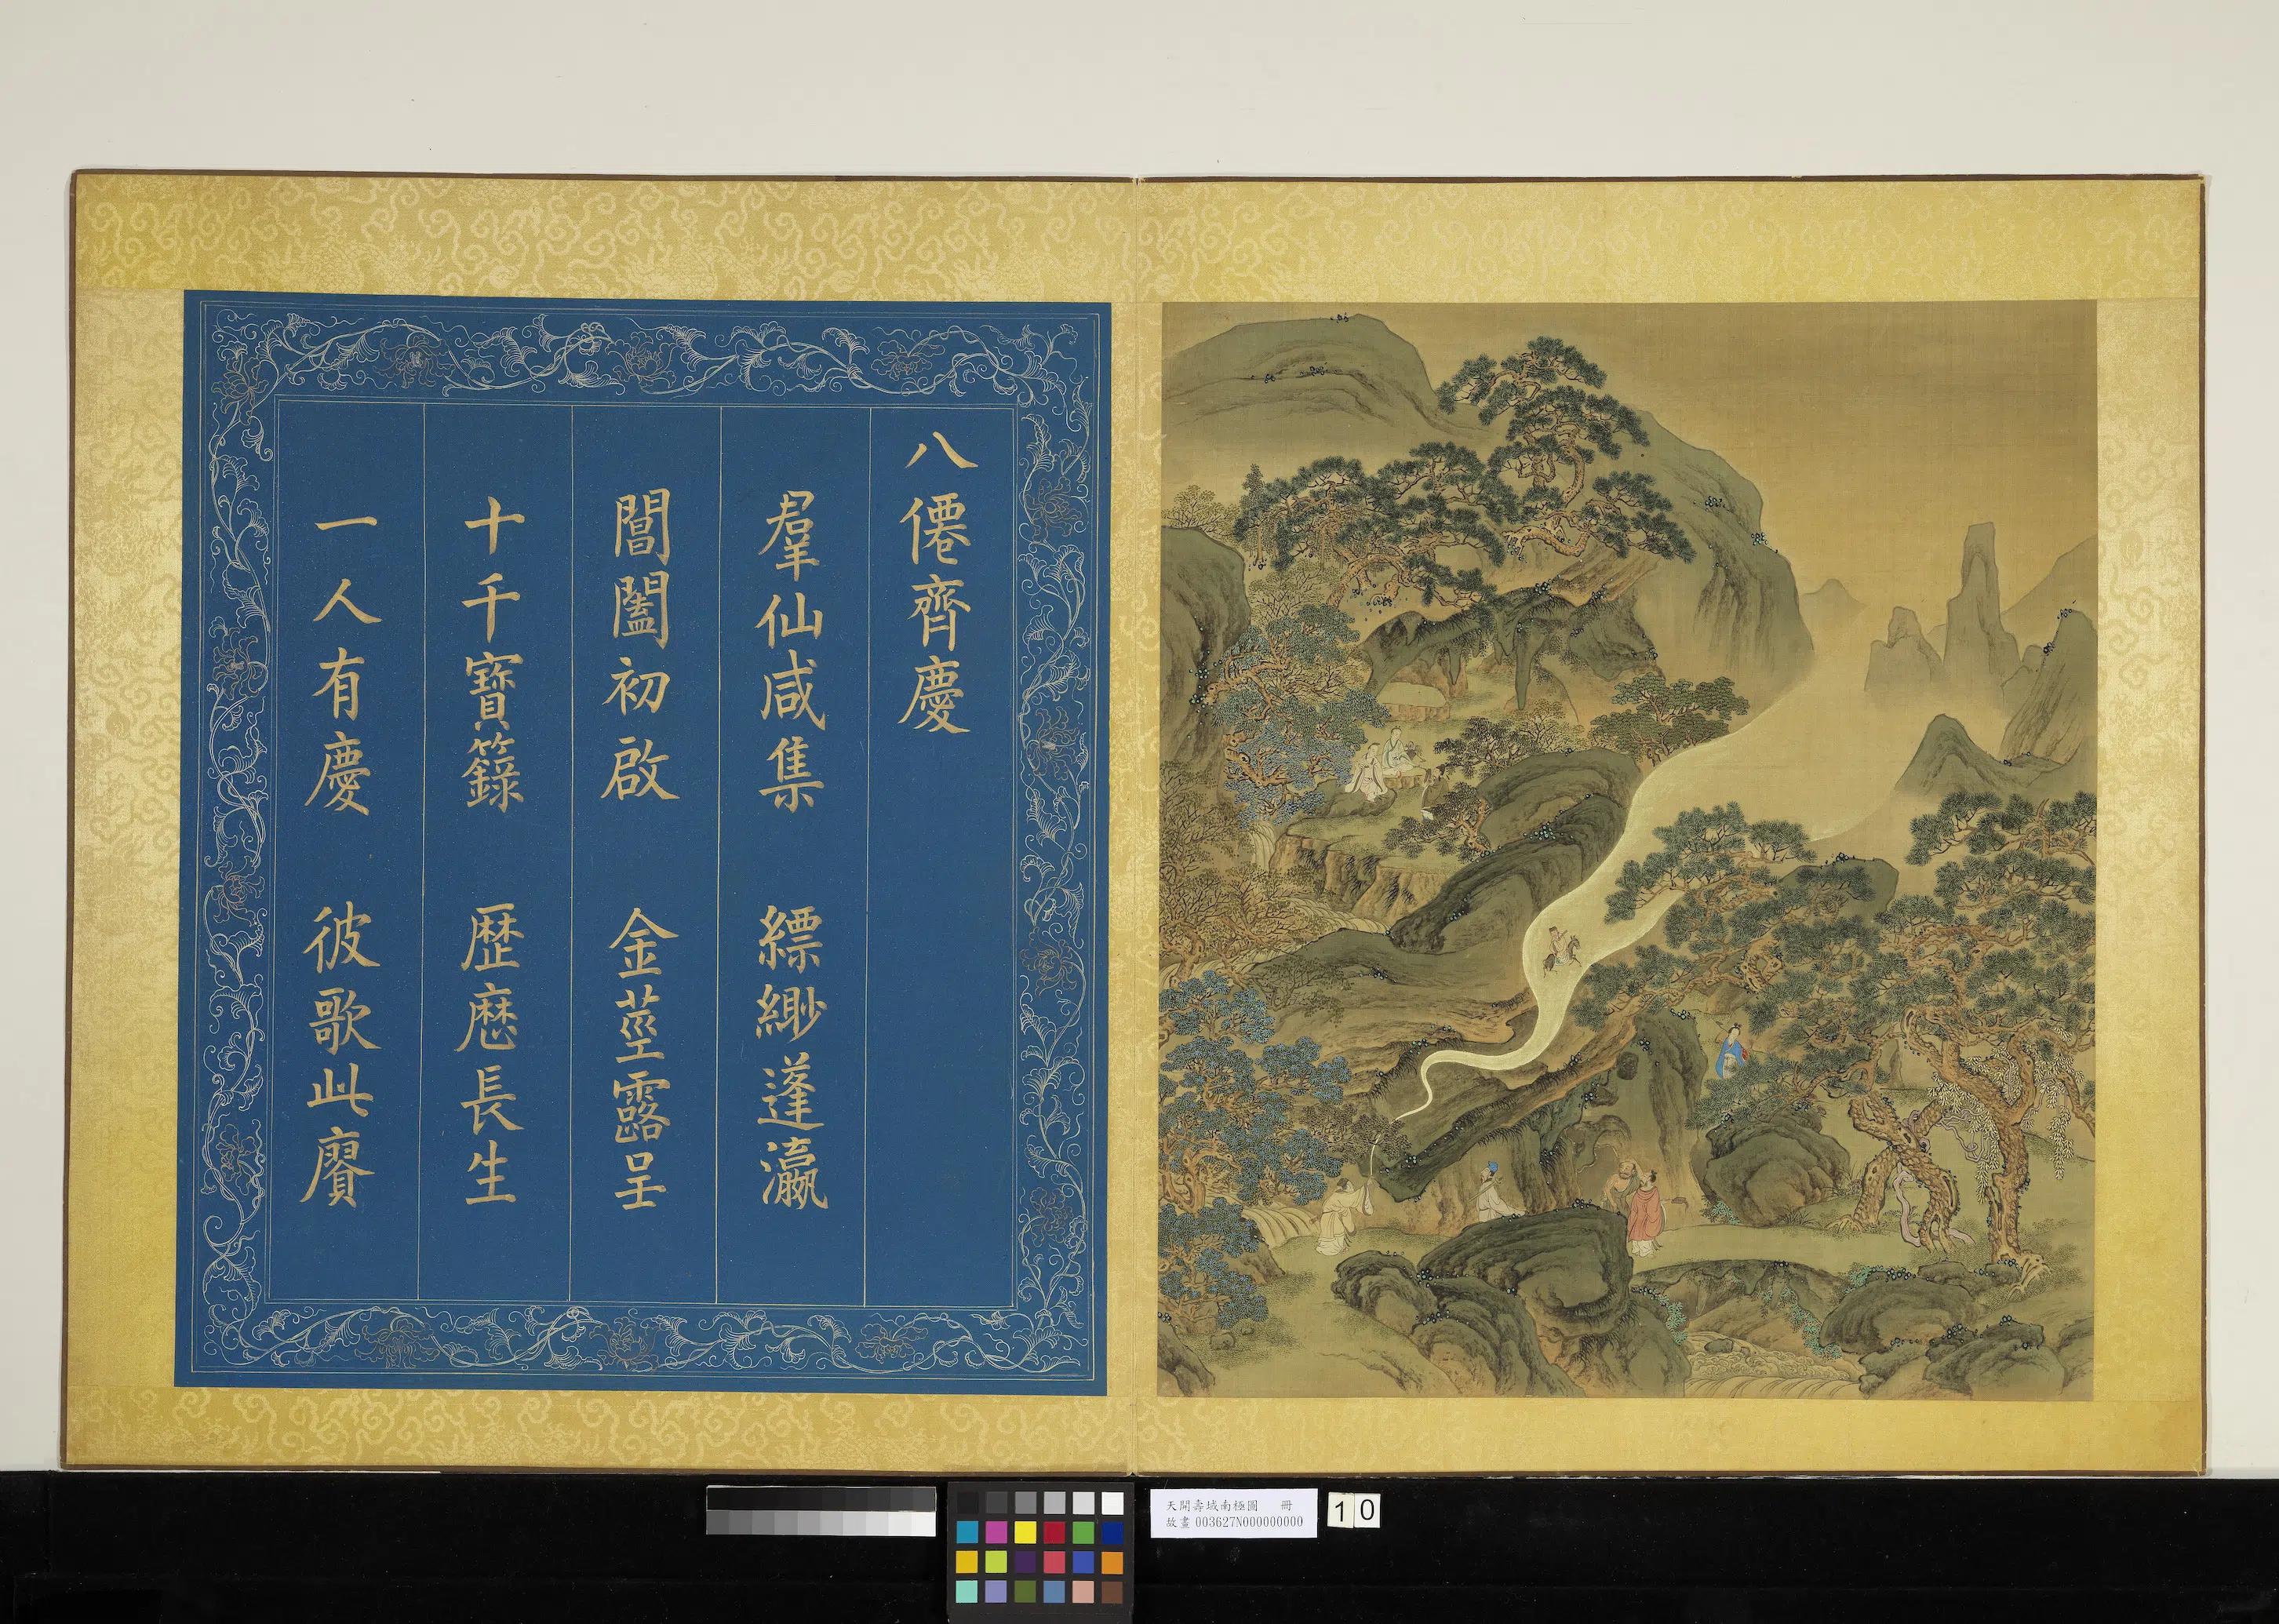 八僊齊慶
羣仙咸集　縹緲蓬瀛
閶闔初啟　金莖露呈
十千寶籙　歷歷長生
一人有慶　彼歌此賡
天開壽域南極圖　冊
故畫 003627N000000000
10